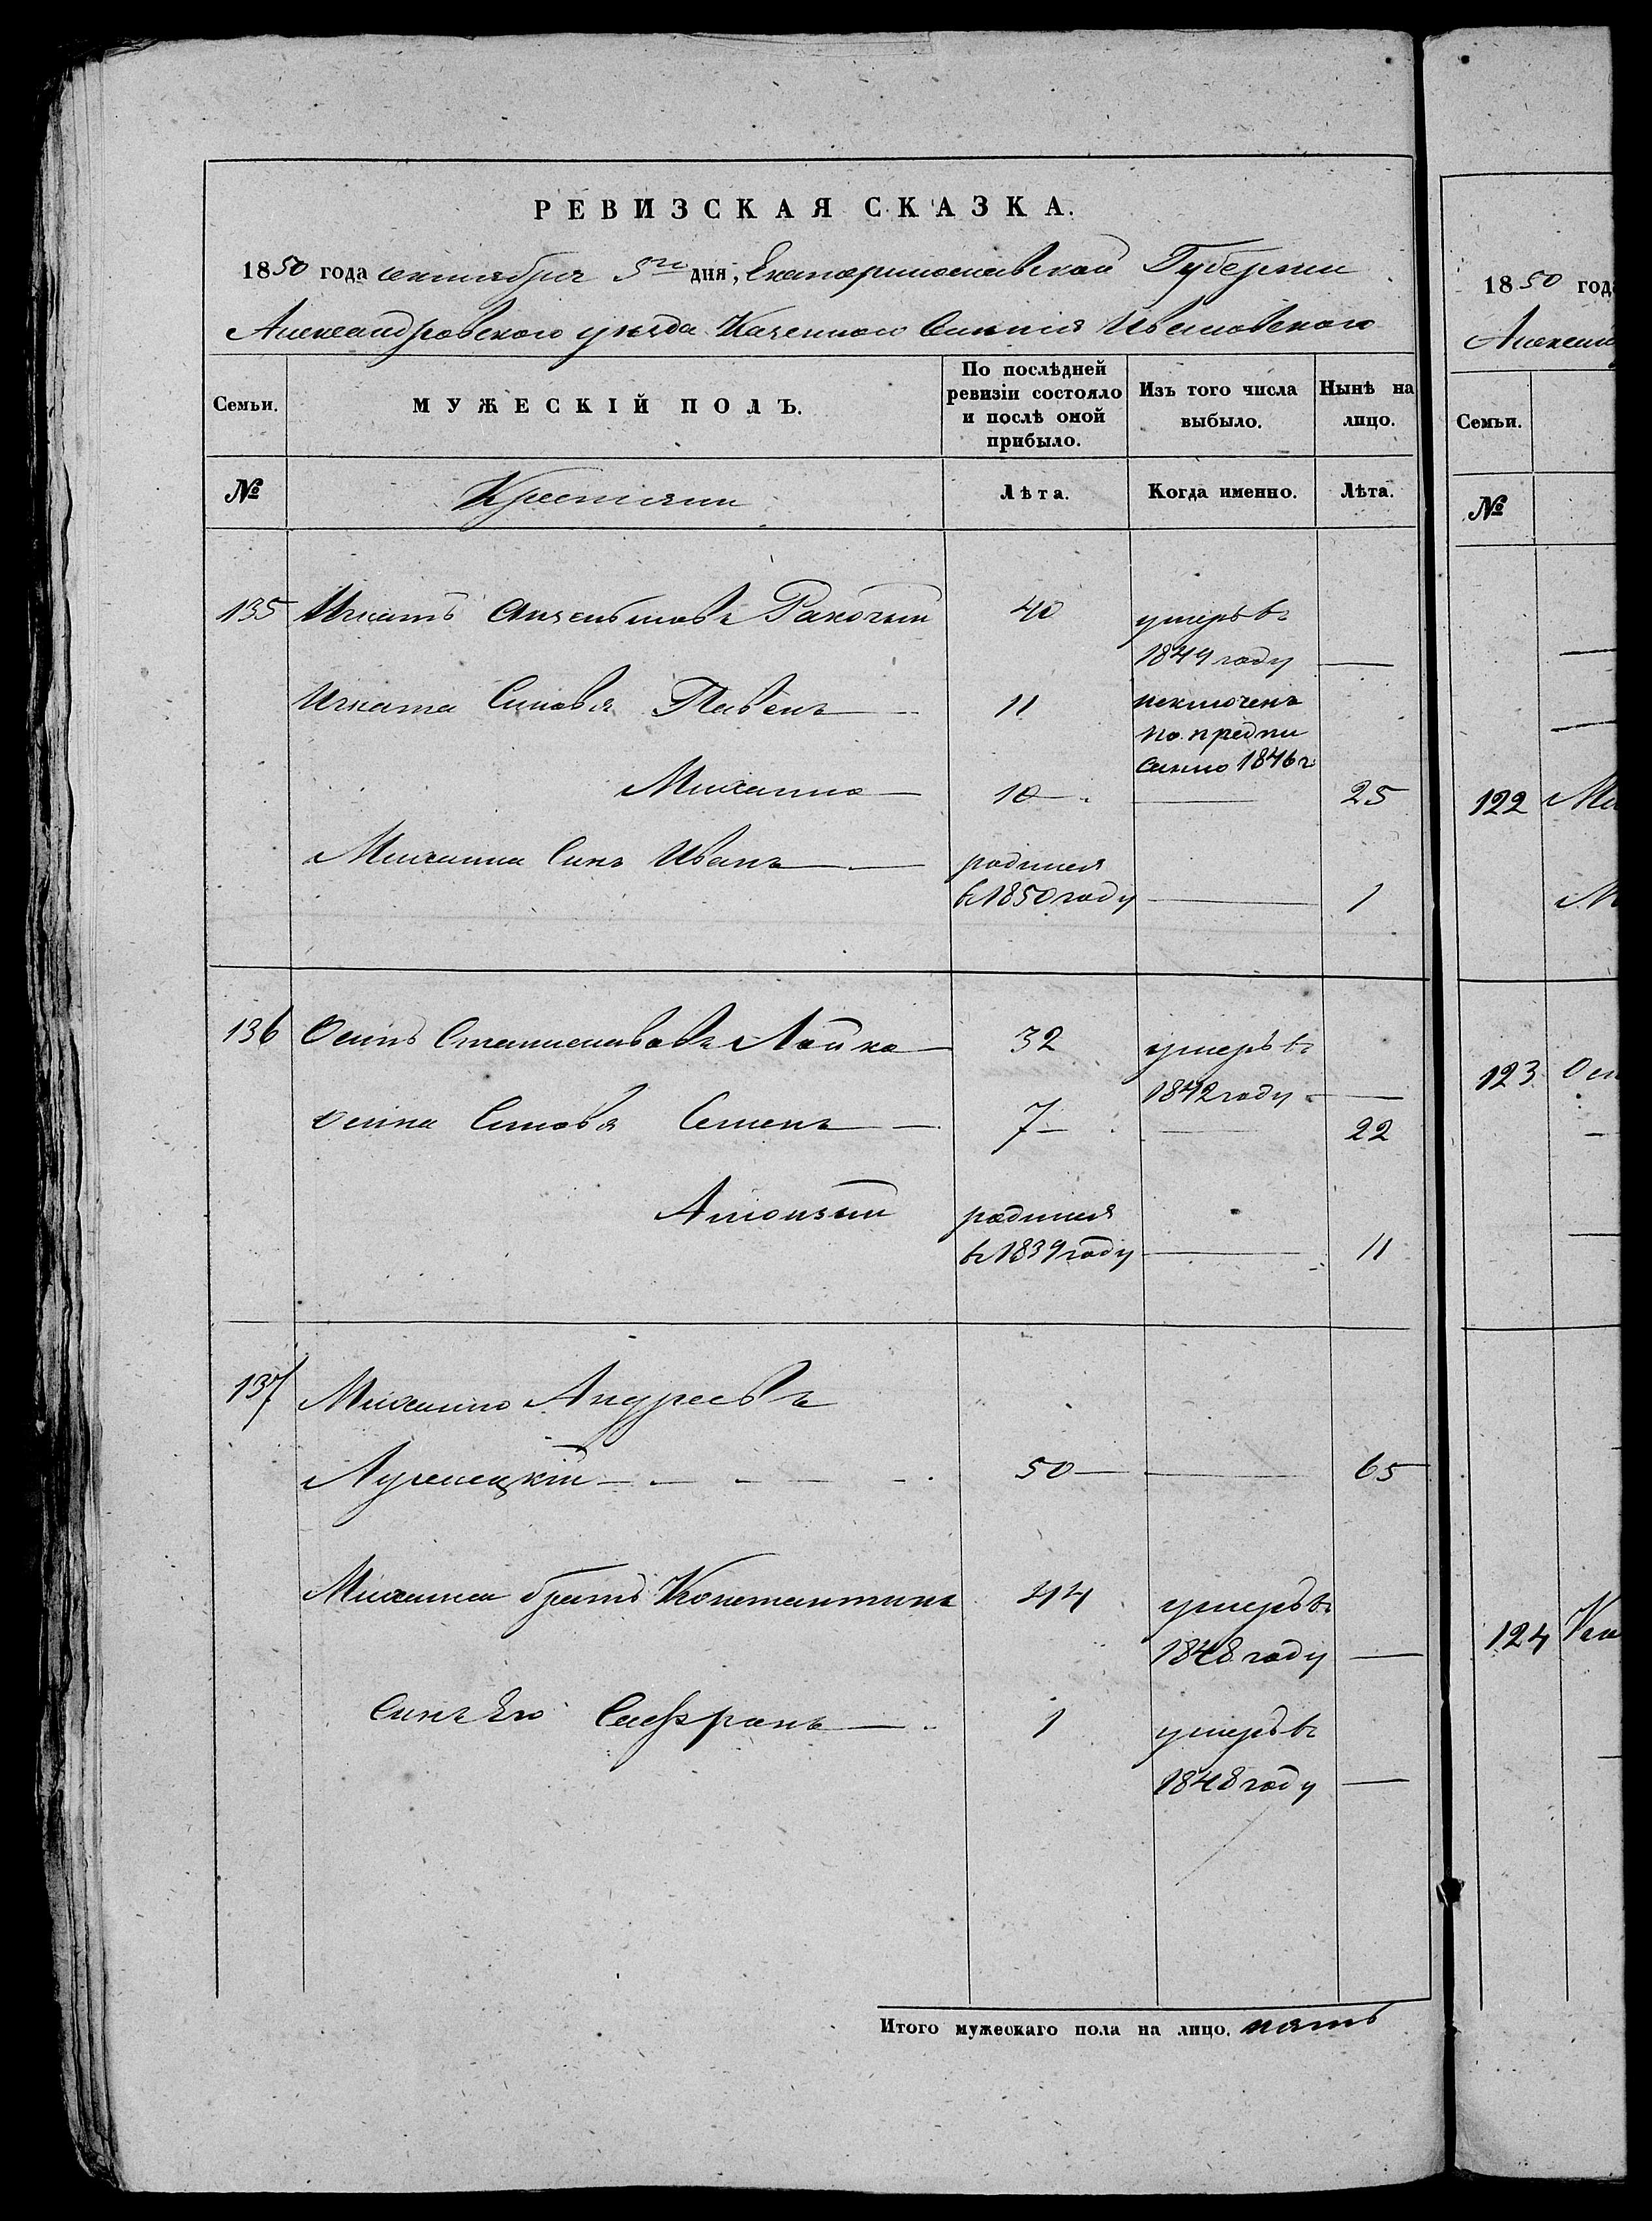 РЕВИЗСКАЯ СКАЗКА.
1850 года сентября 5го дня, Екатеринославской Губернии
Александровского уезда Казенного Ивановского
Семьи.
МУЖЕСКІЙ ПОЛЪ.
По послѣдней ревизіи состояло и послѣ оной прибыло.
Изъ того числа выбыло.
Нынѣ на лицо.
№
Крестяни
Лѣта.
Когда именно.
Лѣта.
135 Игнатъ Ракочий 40 умеръ въ
1849 году —
Игната Синовя Павелъ — 11 исключенъ
по предпи
санию 1846 г.
Михаило — 10 — 25
Михаила Синъ Иванъ — родился
въ 1850 году — 1
136 Осипъ Станиславовъ Лойко — 32 умеръ въ
1842 году —
Осипа Синовя Семенъ — 7 — 22
родился
въ 1839 году — 11
137 Михаило Андреевъ
50 — 65
Михаила братъ Константинъ 44 умеръ въ
1848 году —
Синъ Его Сафронъ — 1 умеръ въ
1848 году —
Итого мужескаго пола на лицо. пять
1850 года
Семьи.
№
122
123
124